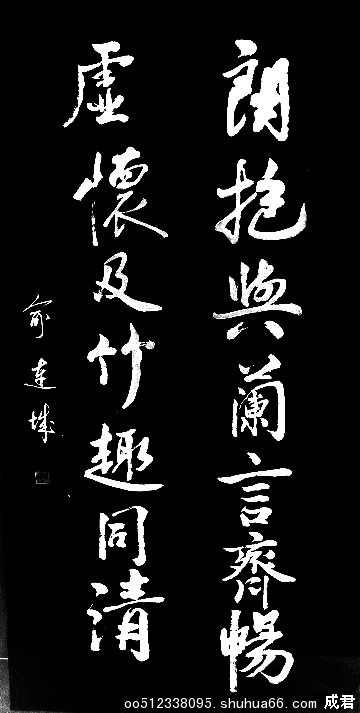 朗抱與蘭言齊暢
虛懷及竹趣同清
俞建城
oo512338095.shuhua66.com 成君